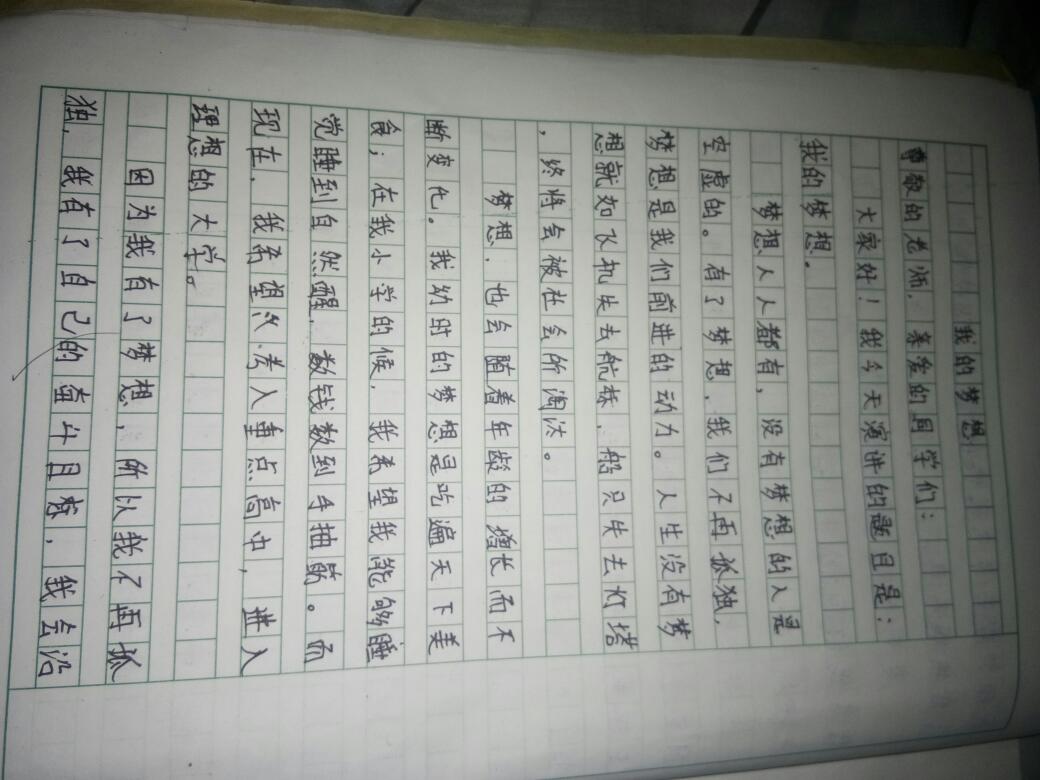 我的梦想
尊敬的老师，亲爱的同学们：
大家好！我今天演讲的题目是：
我的梦想。
梦想人人都有，没有梦想的人是
空虚的。有了梦想，我们不再孤独，
梦想是我们前进的动力。人生没有梦
想就如飞机失去航标，船只失去灯塔
，终将会被社会所淘汰。
梦想，也会随着年龄的增长而不
断变化。我幼时的梦想是吃遍天下美
食；在我小学的候，我希望我能够睡
觉睡到自然醒，数钱数到手抽筋。而
现在，我希望考入重点高中，进入
理想的大学。
因为我有了梦想，所以我不再孤
独，我有了自己的奋斗目标，我会沿